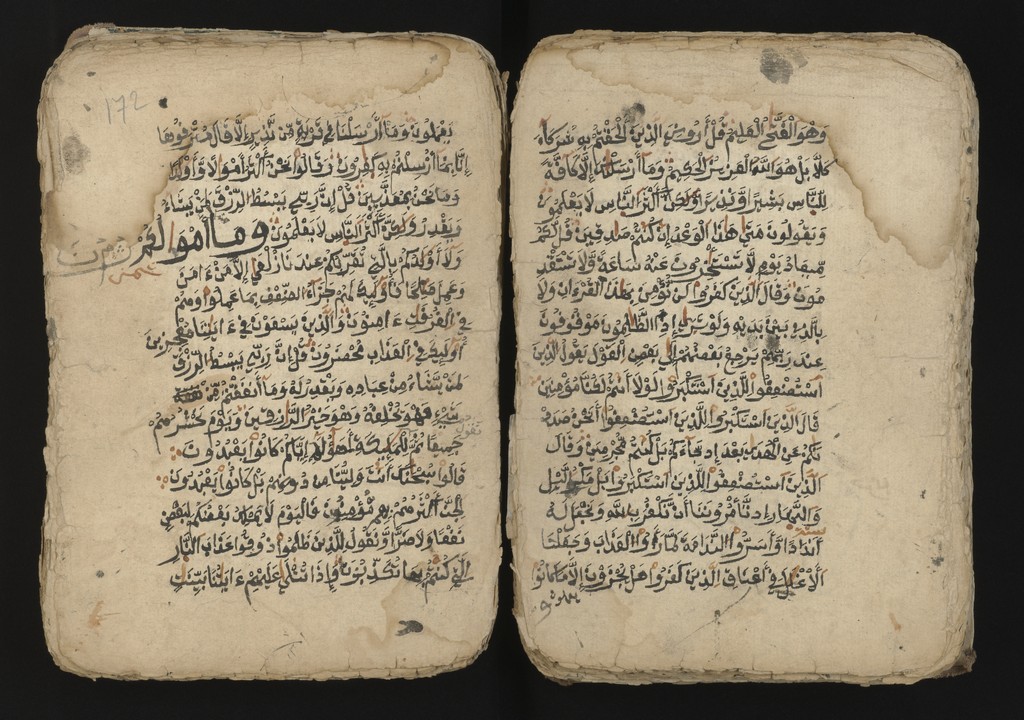 وهو الفتح العليم قل أروني الذين ألحقتم به شركاء
كلا بل هو الله العزيز الحكيم وما أرسلنك إلا كافة
للناس بشيرا ونذيرا ولكن أكثر الناس لا يعلمون
ويقولون متى هذا الوعد إن كنتم صدقين قل لكم
ميعاد يوم لا تستخرون عنه ساعة ولا تستقد
مون وقال الذين كفروا لن نؤمن بهذا القرءان ولا
بالذي بين يديه ولو ترى إذ الظلمون موقوفون
عند ربهم يرجع بعضهم إلى بعض القول يقول الذين
استضعفوا للذين استكبروا لولا أنتم لكنا مؤمنين
قال الذين استكبروا للذين استضعفوا أنحن صدد
نكم عن الهدى بعد إذ جاءكم بل كنتم مجرمين وقال
الذين استضعفوا للذين استكبروا بل مكر اليل
والنهار إذ تأمروننا أن نكفر بالله ونجعل له
أندادا وأسروا الندامة لما رأوا العذاب وجعلنا
الأغلل في أعناق الذين كفروا هل يجزون إلا ما كانوا
172
يعملون وما أرسلنا في قرية من نذير إلا قال مترفوها
إنا بما أرسلتم به كفرون وقالوا نحن أكثر أمولا وأولدا
وما نحن بمعذبين قل إن ربي يبسط الرزق لمن يشاء
ويقدر ولكن أكثر الناس لا يعلمون وما أمولكم
ولا أولدكم بالتي تقربكم عندنا زلفى إلا من ءامن
وعمل صلحا فأوليك لهم جزاء الضعف بما عملوا وهم
في الغرفت ءامنون والذين يسعون في ءايتنا معجزين
أوليك في العذاب محضرون قل إن ربي يبسط الرزق
لمن يشاء من عباده ويقدر له وما أنفقتم من
شيء فهو يخلفه وهو خير الرازقين ويوم نحشرهم
جميعا ثم نقول للمليكة أهؤلاء إياكم كانوا يعبدون
قالوا سبحنك أنت ولينا من دونهم بل كانوا يعبدون
الجن أكثرهم بهم مؤمنون فاليوم لا يملك بعضكم لبعض
نفعا ولا ضرا ونقول للذين ظلموا ذوقوا عذاب النار
التي كنتم بها تكذبون وإذا تتلى عليهم ءايتنا بينت